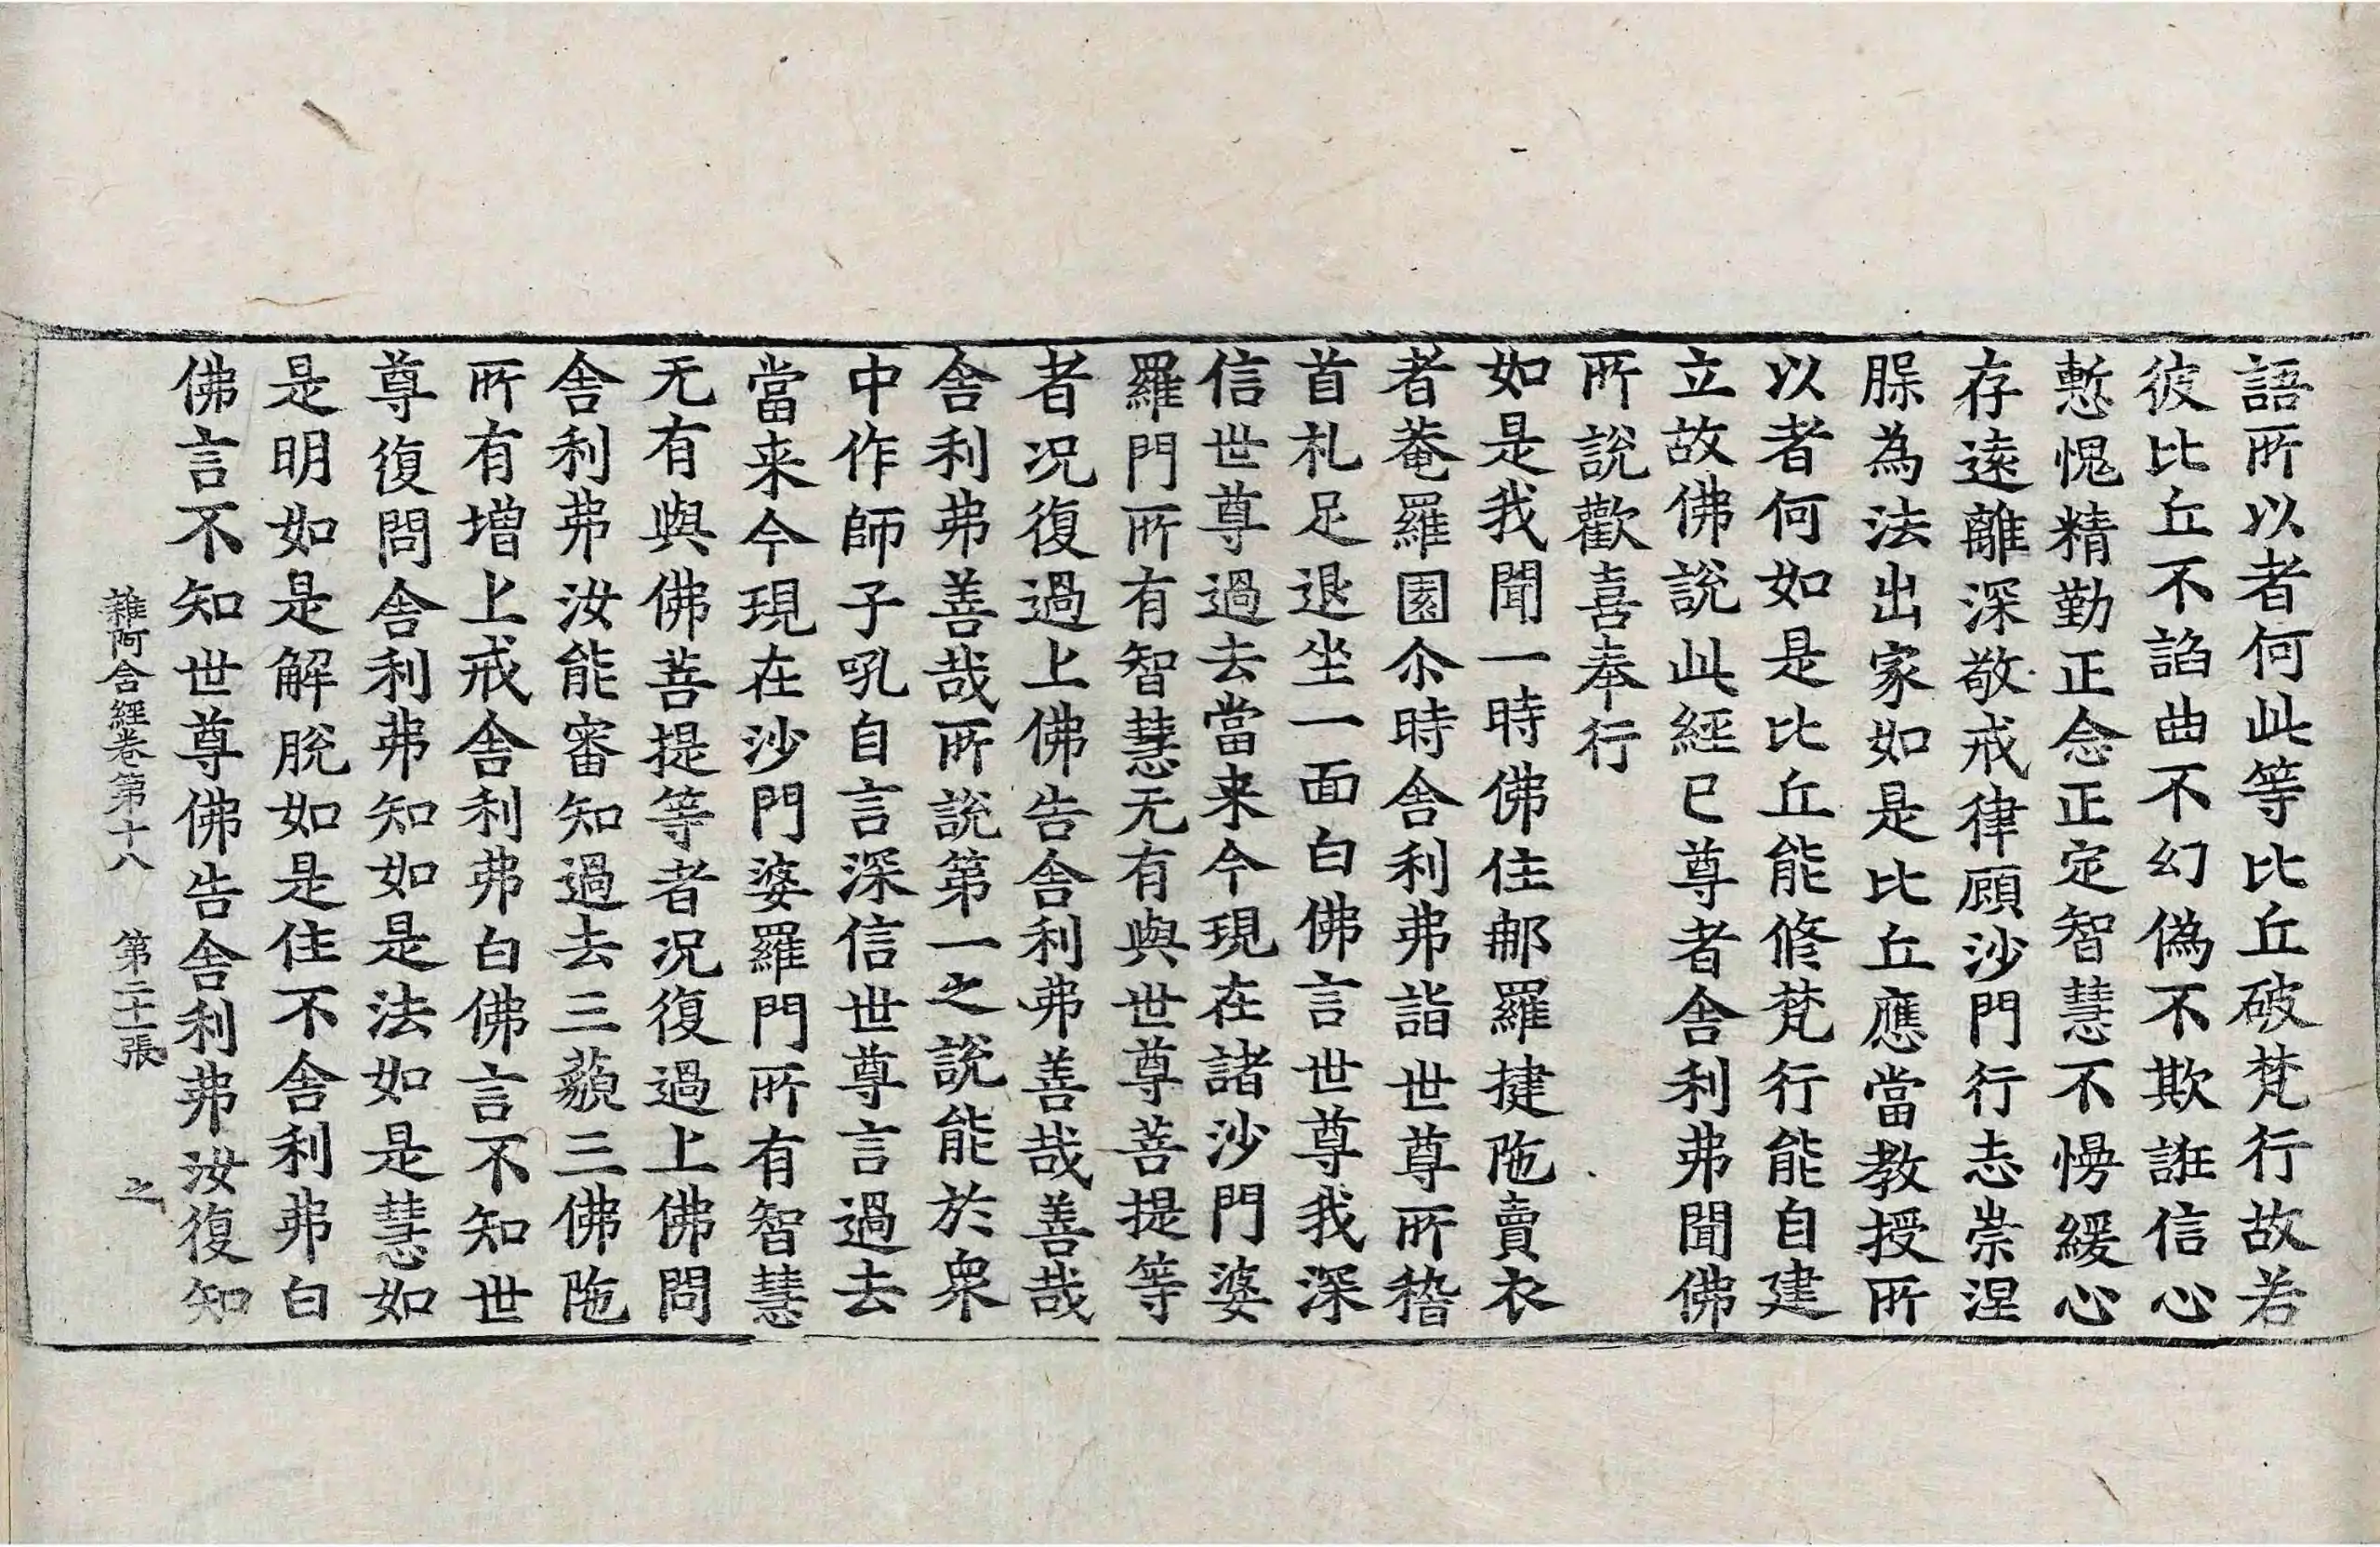 語所以者何此等比丘破梵行故若
彼比丘不諂曲不幻偽不欺誑信心
慙愧精勤正念正定智慧不慢緩心
存遠離深敬戒律顧沙門行志崇涅
槃為法出家如是比丘應當教授所
以者何如是比丘能修梵行能自建
立故佛說此經已尊者舍利弗聞佛
所說歡喜奉行
如是我聞一時佛住那羅揵陁賣衣
者菴羅園尒時舍利弗詣世尊所稽
首礼足退坐一面白佛言世尊我深
信世尊過去當来今現在諸沙門婆
羅門所有智慧无有與世尊菩提等
者况復過上佛告舍利弗善哉善哉
舍利弗善哉所說第一之說能於衆
中作師子吼自言深信世尊言過去
當来今現在沙門婆羅門所有智慧
无有與佛菩提等者况復過上佛問
舍利弗汝能審知過去三藐三佛陁
所有增上戒舍利弗白佛言不知世
尊復問舍利弗知如是法如是慧如
是明如是解脫如是住不舍利弗白
佛言不知世尊佛告舍利弗汝復知
雜阿含經卷第十八 第二十一張 之